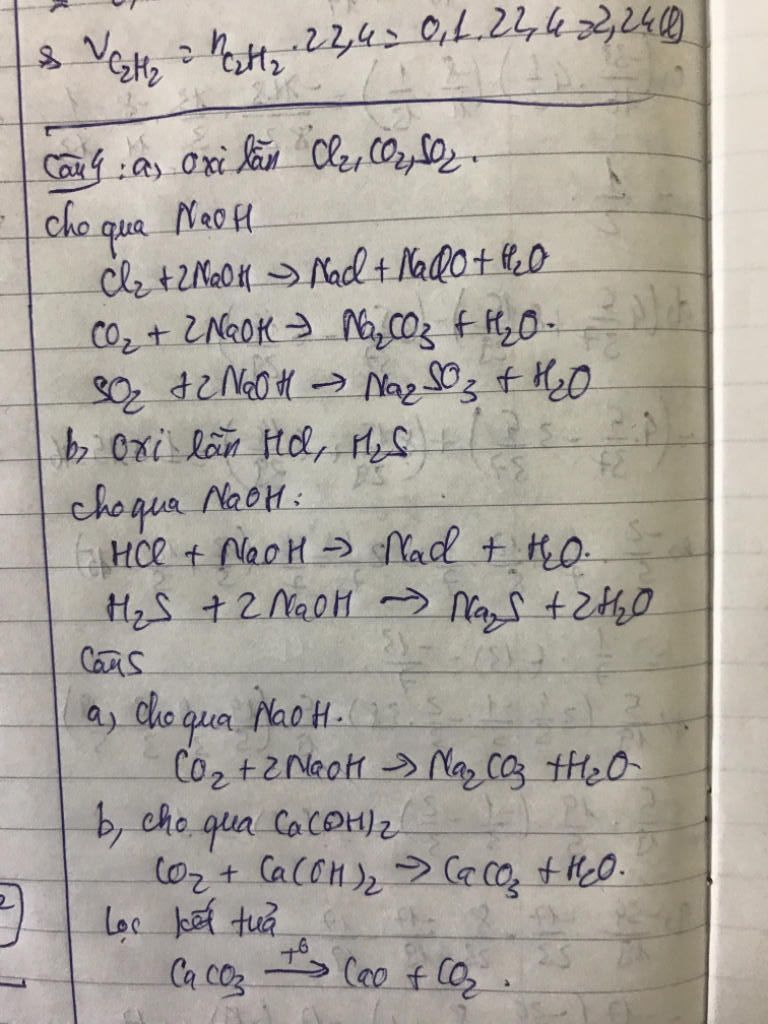 & V C₂H₂ = n C₂H₂ . 22,4 = 0,1. 22,4 = 2,24(l)
Câu 4 : a, oxi lẫn Cl₂, CO₂, SO₂.
cho qua NaOH
Cl₂ + 2NaOH → NaCl + NaClO + H₂O
CO₂ + 2NaOH → Na₂CO₃ + H₂O.
SO₂ + 2NaOH → Na₂SO₃ + H₂O
b, oxi lẫn HCl, H₂S
cho qua NaOH :
HCl + NaOH → NaCl + H₂O.
H₂S + 2NaOH → Na₂S + 2H₂O
Câu 5
a, cho qua NaOH.
CO₂ + 2NaOH → Na₂CO₃ + H₂O
b, cho qua Ca(OH)₂
CO₂ + Ca(OH)₂ → CaCO₃ + H₂O.
Lọc kết tủa
CaCO₃ →(t°) CaO + CO₂ .